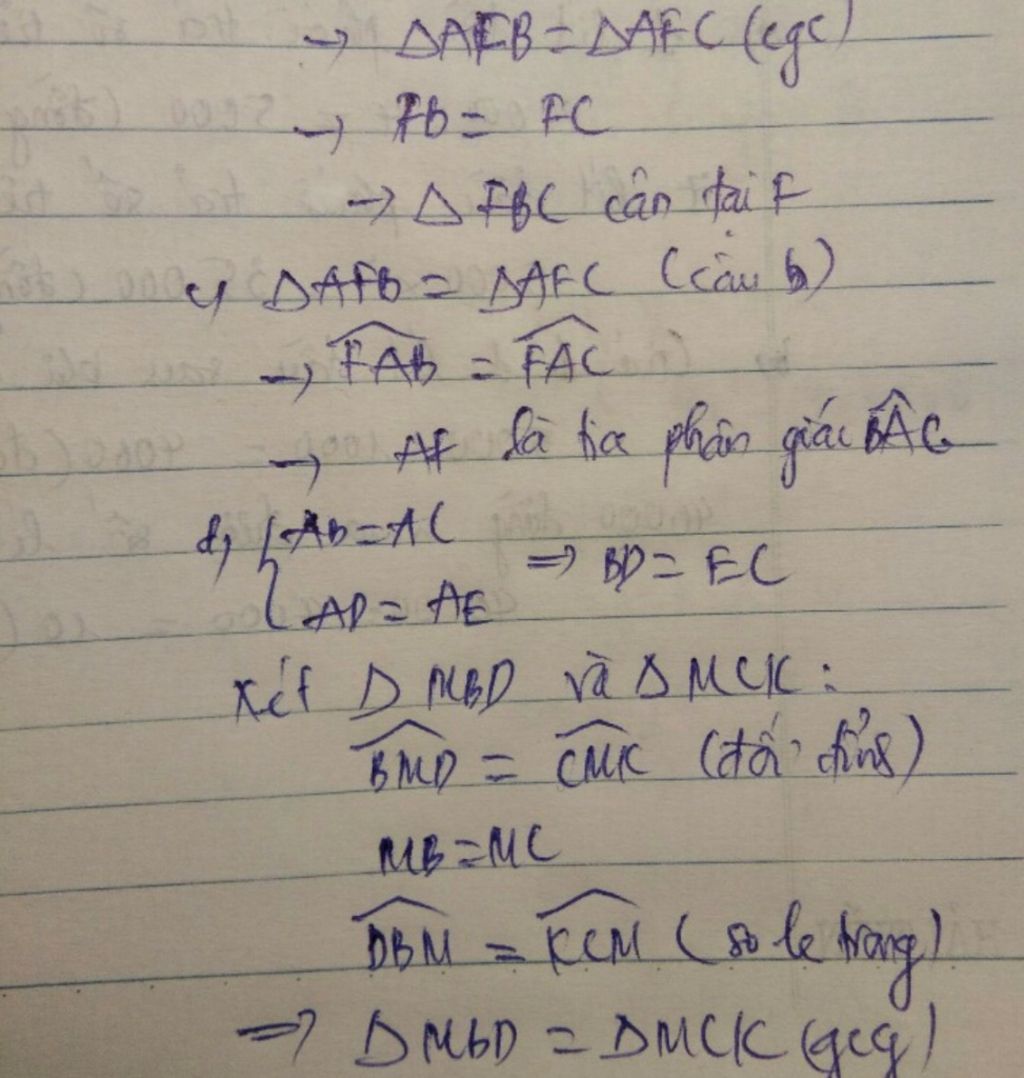 → ΔAFB = ΔAFC (cgc)
→ FB = FC
→ Δ FBC cân tại F
c, ΔAFB = ΔAFC (câu b)
→ \widehat{FAB} = \widehat{FAC}
→ AF là tia phân giác \widehat{BAC}
d, { AB = AC
AD = AE ⇒ BD = EC
Xét Δ MBD và Δ MCK :
\widehat{BMD} = \widehat{CMK} (đối đỉnh)
MB = MC
\widehat{DBM} = \widehat{KCM} (so le trong)
⇒ ΔMBD = ΔMCK (gcg)